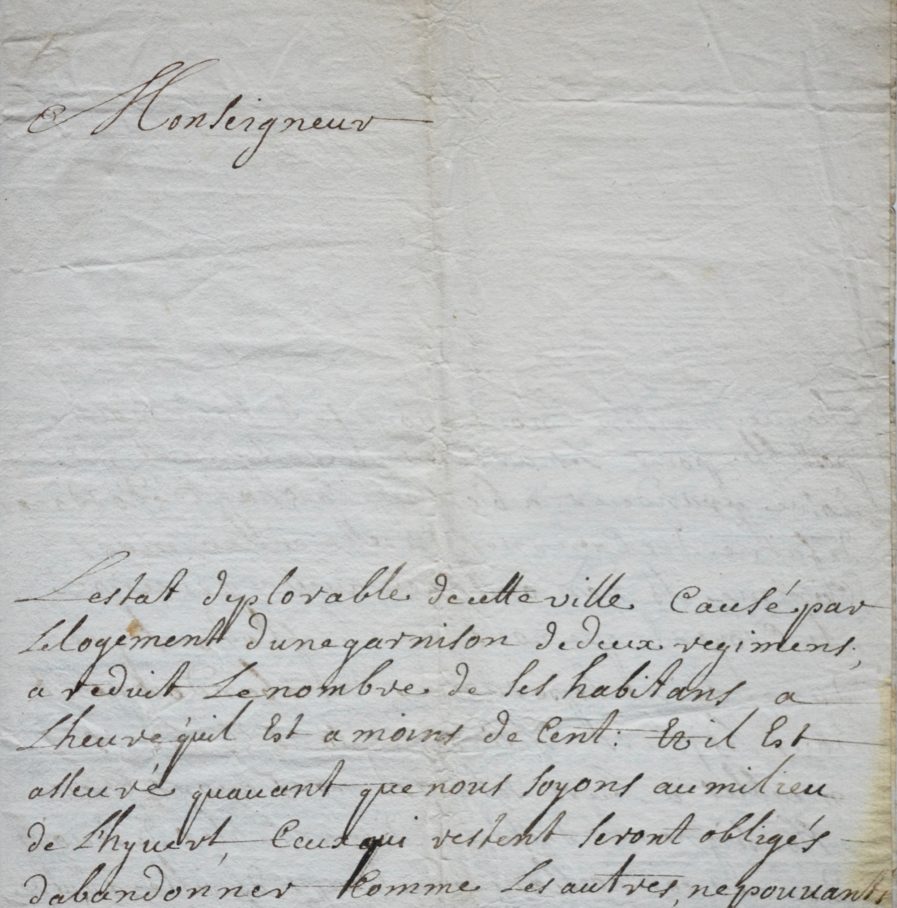 Monseigneur
Lestat deplorable de cette ville Causé par
Le logement dune garnison de deux regimens,
a reduit Le nombre de ses habitans a
Lheure quil Est a moins de Cent: Et il Est
asseuré quauant que nous soyons au milieu
de Lhyuert, Ceux qui restent seront obligés
dabandonner Comme Les autres, ne pouuants